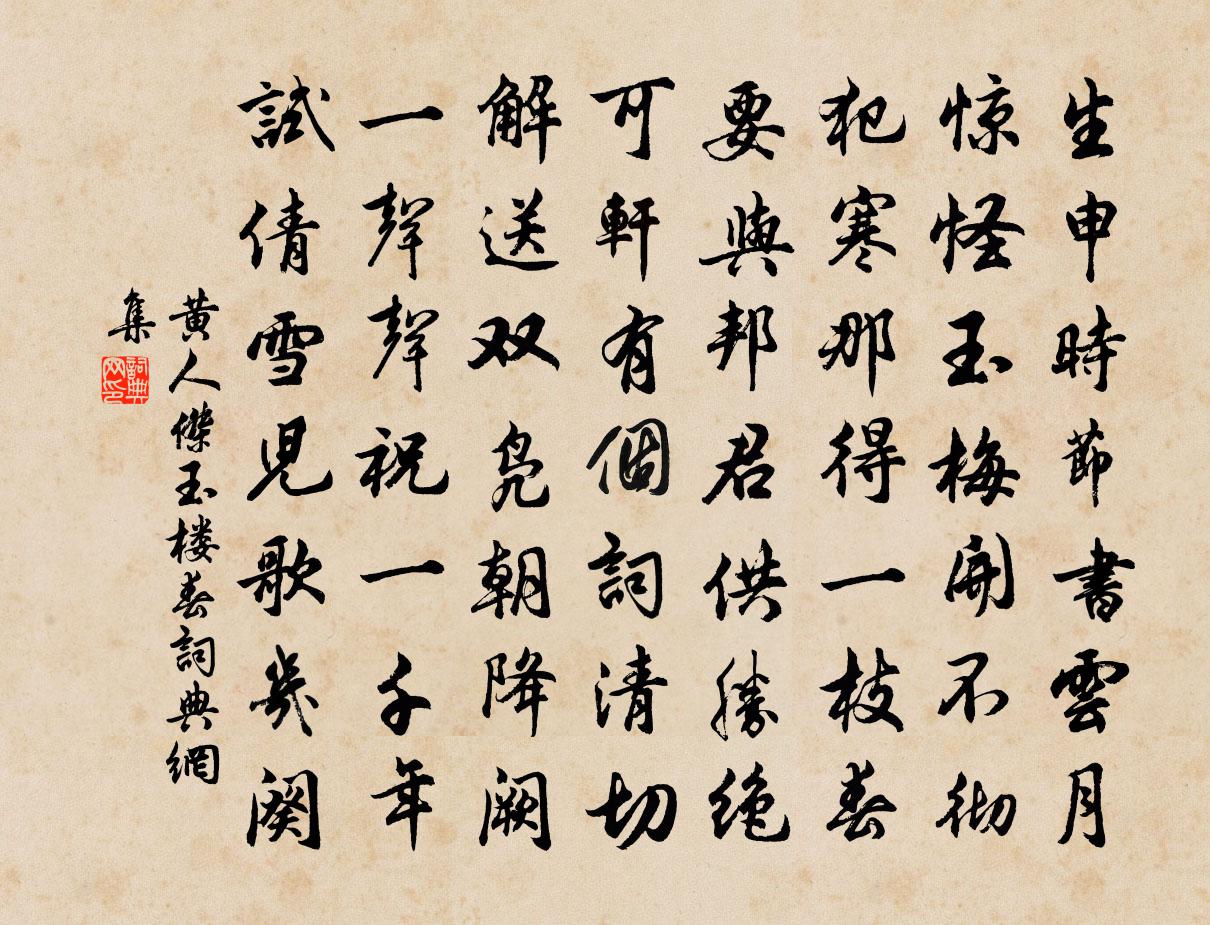 生申時節書雲月
惊怪玉梅開不彻
犯寒那得一枝春
要與邦君供勝絶
可軒有個詞清切
解送双凫朝降阙
一聲聲祝一千年
試倩雪児歌幾闋
黄人傑玉楼春詞典網
集
詞典
网印